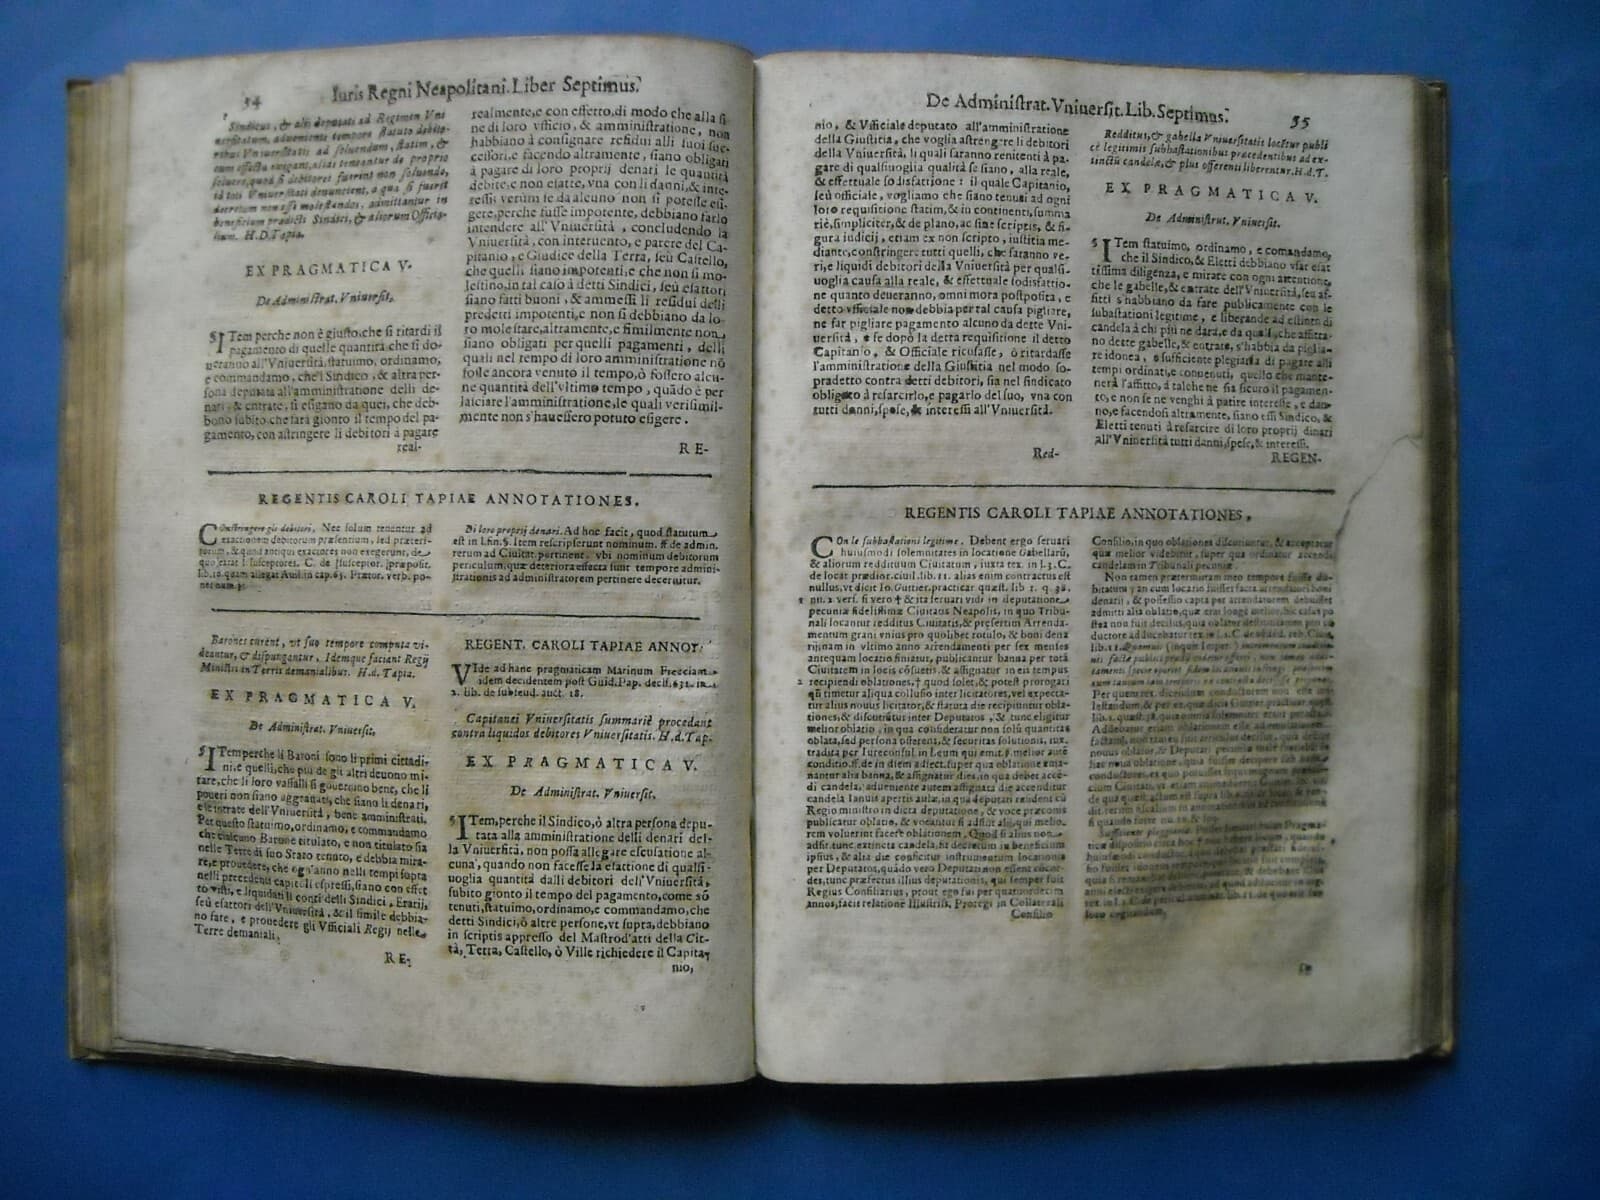 54
Iuris Regni Neapolitani. Liber Septimus.
Sindicus, & alij deputati ad Regimen Vni
uersitatum, adueniente tempore statuto debito-
ribus Vniuersitatis ad soluendum, statim, &
cum effectu exigant, alias teneantur de proprio
soluere, quod si debitores fuerint non soluendo,
id toti Vniuersitati denuncient, a qua si fuerit
decretum non esse molestandos, admittantur in
beneficium prædicti Sindici, & aliorum Officia-
lium. H.D. Tapia.
EX PRAGMATICA V.
De Administrat. Vniuersit.
¶ ITem perche non è giusto, che si ritardi il
pagamento di quelle quantità che si do-
ueranno all'Vniuersità, statuimo, ordinamo,
e commandamo, che'l Sindico, & altra per-
sona deputata all'amministratione delli de-
nari, & entrate, si esigano da quei, che deb-
bono subito che sarà gionto il tempo del pa-
gamento, con astringere li debitori à pagare
real-
realmente, e con effetto, di modo che alla fi
ne di loro vfficio, & amministratione, non
habbiano à consignare residui alli suoi suc-
cessori, e facendo altramente, siano obligati
à pagare di loro proprij denari le quantità
debite, e non esatte, vna con li danni, & inte-
ressi: verum se da alcuno non si potesse esi-
gere, perche fusse impotente, debbiano farlo
intendere all'Vniuersità, concludendo la
Vniuersità, con interuento, e parere del Ca-
pitanio, e Giudice della Terra, seù Castello,
che quelli siano impotenti, e che non si mo-
lestino, in tal caso à detti Sindici, seù esattori
siano fatti buoni, & ammessi li residui delli
predetti impotenti, e non si debbiano da lo-
ro molestare, altramente, e similmente non
siano obligati per quelli pagamenti, delli
quali nel tempo di loro amministratione nō
fosse ancora venuto il tempo, ò fossero alcu-
ne quantità dell'vltimo tempo, quādo è per
lasciare l'amministratione, le quali verisimil-
mente non s'hauessero potuto esigere.
RE-
REGENTIS CAROLI TAPIAE ANNOTATIONES.
COnstringere gli debitori. Nec solum tenentur ad
exactionem debitorum præsentium, sed præteri-
torum, & quod antiqui exactores non exegerunt, de-
quo erat l. susceptores. C. de susceptor. præposit.
lib. 10. quam allegat Auil. in cap. 63. Prætor. verb. po-
ner. num. 3.
Di loro proprij denari. Ad hoc facit, quod statutum
est in l. fin. §. Item rescripserunt nominum. ff. de admin.
rerum ad Ciuitat. pertinent. vbi nominum debitorum
periculum, quæ deteriora effecta sunt tempore admini-
strationis ad administratorem pertinere decernitur.
Barones curent, vt suo tempore computa vi-
deantur, & dispungantur. Idemque faciant Regij
Ministri in Terris demanialibus. H.d. Tapia.
EX PRAGMATICA V.
De Administrat. Vniuersit.
¶ ITem perche li Baroni sono li primi cittadi-
ni, e quelli, che più de gli altri deuono mi-
rare, che li loro vassalli si gouernino bene, che li
poueri non siano aggrauati, che siano li denari,
e le intrate dell'Vniuersità, bene amministrati.
Per questo statuimo, ordinamo, e commandamo
che ciascuno Barone titulato, e non titulato sia
nelle Terre di suo Stato tenuto, e debbia mira-
re, e prouedere, che ogn'anno nelli tempi sopra
nelli precedenti capitoli espressi, siano con effet
to visti, e liquidati li conti delli Sindici, Erarij,
seù esattori dell'Vniuersità, & il simile debbia-
no fare, e prouedere gli Vfficiali Regij nelle
Terre demaniali.
RE-
REGENT. CAROLI TAPIAE ANNOT.
VIde ad hanc pragmaticam Marinum Frecciam
idem decidentem post Guid. Pap. decis. 631. in
2. lib. de subfeud. auct. 18.
Capitanei Vniuersitatis summariè procedant
contra liquidos debitores Vniuersitatis. H.d. Tap.
EX PRAGMATICA V.
De Administrat. Vniuersit.
¶ ITem, perche il Sindico, ò altra persona depu-
tata alla amministratione delli denari del-
la Vniuersità, non possa allegare escusatione al-
cuna, quando non facesse la esattione di qualsi-
uoglia quantità dalli debitori dell'Vniuersità,
subito gionto il tempo del pagamento, come sō
tenuti, statuimo, ordinamo, e commandamo, che
detti Sindici, ò altre persone, vt supra, debbiano
in scriptis appresso del Mastrod'atti della Cit-
tà, Terra, Castello, ò Ville richiedere il Capita-
nio,
De Administrat. Vniuersit. Lib. Septimus.
55
nio, & Vfficiale deputato all'amministratione
della Giustitia, che voglia astrengere li debitori
della Vniuersità, li quali saranno renitenti à pa-
gare di qualsiuoglia qualità se siano, alla reale,
& effettuale sodisfatione: il quale Capitanio,
seù officiale, vogliamo che siano tenuti ad ogni
loro requisitione statim, & in continenti, summa
riè, simpliciter, & de plano, ac sine scriptis, & fi-
gura iudicij, etiam ex non scripto, iustitia me-
diante, constringere tutti quelli, che saranno ve-
ri, e liquidi debitori della Vniuersità per qualsi-
uoglia causa alla reale, & effettuale sodisfatio-
ne quanto deueranno, omni mora postposita, e
detto vfficiale non debbia per tal causa pigliare,
ne far pigliare pagamento alcuno da dette Vni-
uersità, e se dopo la detta requisitione il detto
Capitanio, & Officiale ricusasse, ò ritardasse
l'amministratione della Giustitia nel modo so-
pradetto contra detti debitori, sia nel sindicato
obligato à resarcirlo, e pagarlo del suo, vna con
tutti danni, spese, & interessi all'Vniuersità.
Red-
Redditus, & gabella Vniuersitatis locētur publi
cè legitimis subhastationibus præcedentibus ad ex-
tinctū candelæ, & plus offerenti liberentur. H.d.T.
EX PRAGMATICA V.
De Administrat. Vniuersit.
¶ ITem statuimo, ordinamo, e comandamo,
che il Sindico, & Eletti debbiano vsar esat
tissima diligenza, e mirare con ogni attentione,
che le gabelle, & entrate dell'Vniuersità, seù af-
fitti s'habbiano da fare publicamente con le
subastationi legitime, e liberande ad estinto di
candela à chi più ne darà, e da quali, che affitta-
no dette gabelle, & entrate, s'habbia da piglia-
re idonea, e sufficiente plegiaria di pagare alli
tempi ordinati, e conuenuti, quello che mante-
nerà l'affitto, à talche ne sia sicuro il pagamen-
to, e non se ne venghi à patire interesse, e dan-
no, e facendosi altramente, siano essi Sindico, &
Eletti tenuti à resarcire di loro proprij dinari
all'Vniuersità tutti danni, spese, & interessi.
REGEN-
REGENTIS CAROLI TAPIAE ANNOTATIONES.
COn le subhastationi legitime. Debent ergo seruari
huiusmodi solemnitates in locatione Gabellarū,
& aliorum reddituum Ciuitatum, iuxta tex. in l. 3. C.
de locat. prædior. ciuil. lib. 11. alias enim contractus est
nullus, vt dicit Io. Guttier. practicar quæst. lib 1. q. 38.
nu. 2. vers. si vero † & ita seruari vidi in deputatione
pecuniæ fidelissimæ Ciuitatis Neapolis, in quo Tribu-
nali locantur redditus Ciuitatis, & præsertim Arrenda-
mentum grani vnius pro quolibet rotulo, & boni dena
rij, nam in vltimo anno arrendamenti per sex menses
antequam locatio finiatur, publicantur banna per totā
Ciuitatem in locis cōsuetis, & assignatur in eis tempus
recipiendi oblationes, † quod solet, & potest prorogari
qñ timetur aliqua collusio inter licitatores, vel expecta-
tur alius nouus licitator, & statuta die recipiuntur obla-
tiones, & discutiūtur inter Deputatos, & tunc eligitur
melior oblatio, in qua consideratur non solū quantitas
oblata, sed persona offerens, & securitas solutionis, iux.
tradita per Iureconsul. in l. eum qui emit. §. melior autē
conditio. ff. de in diem adiect. super qua oblatione ema-
nantur alia banna, & assignatur dies, in qua debet accē-
di candela; adueniente autem assignata die accenditur
candela Ianuis apertis aulæ, in qua deputati resident cū
Regio ministro in dicta deputatione, & voce præconis
publicatur oblatio, & vocantur si adsint alij, qui melio-
rem voluerint facere oblationem. Quod si alius non
adsit, tunc extincta candela, fit decretum in beneficium
ipsius, & alia die conficitur instrumentum locationis
per Deputatos, quādo vero Deputati non essent cōcor-
des, tunc præfectus illius deputationis, qui semper fuit
Regius Consiliarius, prout ego fui per quatuordecim
annos, facit relationē Illustriss. Proregi in Collaterali
Consilio
Consilio, in quo oblationes discutiuntur, & acceptatur
quæ melior videbitur, super qua ordinatur accendi
candelam in Tribunali pecuniæ.
Non tamen prætermittam meo tempore fuisse du-
bitatum, an cum locatio fuisset facta arrendatori boni
denarij, & possessio capta per arrendatorem debuisset
admitti alia oblatio, quæ erat longè melior,